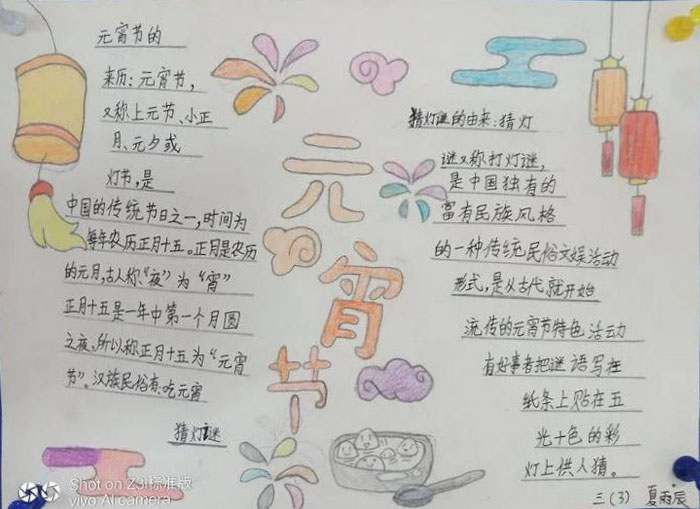 元宵节的
来历：元宵节，
又称上元节、小正
月、元夕或
灯节，是
中国的传统节日之一，时间为
每年农历正月十五。正月是农历
的元月，古人称“夜”为“宵”
正月十五是一年中第一个月圆
之夜，所以称正月十五为“元宵
节”。汉族民俗有：吃元宵
猜灯谜
元
宵
节
猜灯谜的由来：猜灯
谜又称打灯谜，
是中国独有的
富有民族风格
的一种传统民俗文娱活动
形式，是从古代就开始
流传的元宵节特色活动
有好事者把谜语写在
纸条上贴在五
光十色的彩
灯上供人猜。
三(3) 夏雨辰
Shot on Z3i标准版
vivo AI camera